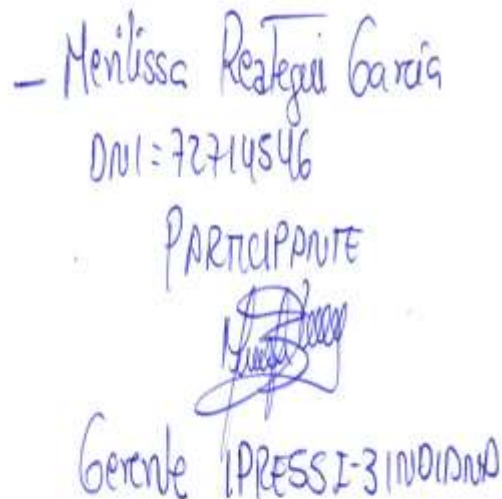 - Merilissa Reategui Garcia
DNI = 72714546
PARTICIPANTE
Gerente IPRESS I-3 INDIANA